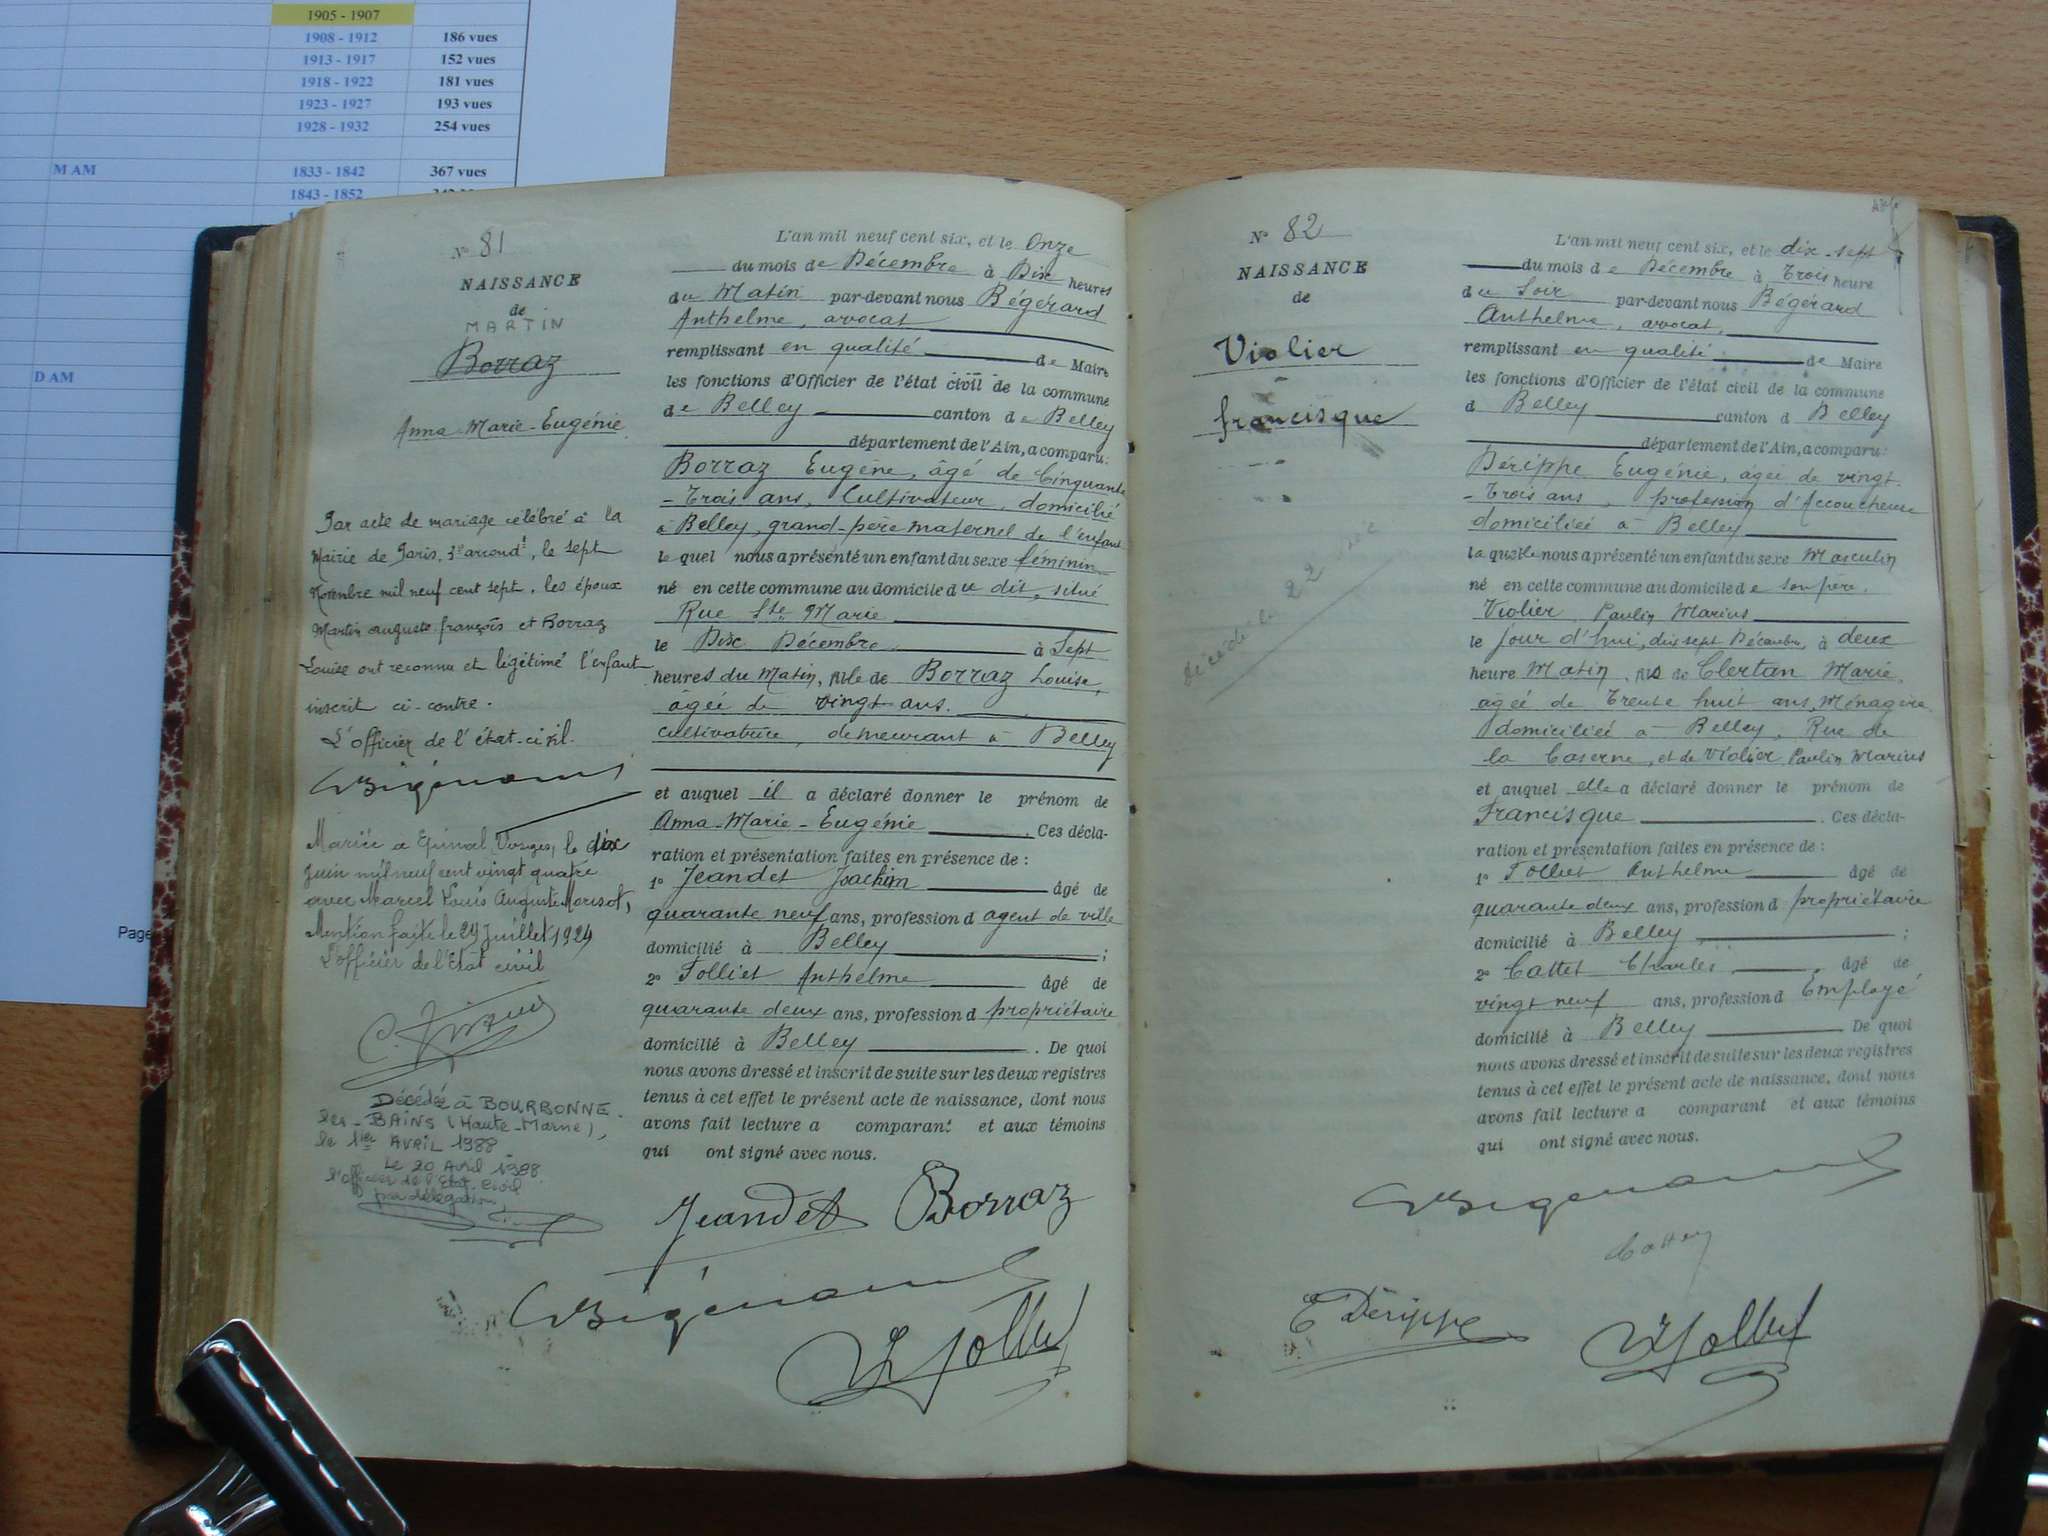 1905 - 1907
1908 - 1912 186 vues
1913 - 1917 152 vues
1918 - 1922 181 vues
1923 - 1927 193 vues
1928 - 1932 254 vues
M AM 1833 - 1842 367 vues
1843 - 1852
D AM
Page
N° 81
NAISSANCE
de
MARTIN
Borraz
Anna-Marie-Eugénie
Par acte de mariage célébré à la
Mairie de Paris, 3e arrondt, le sept
Novembre mil neuf cent sept, les époux
Martin auguste françois et Borraz
Louise ont reconnu et légitimé l'enfant
inscrit ci-contre.
L'officier de l'état-civil.
Mariée à Epinal, Vosges, le dix
juin mil neuf cent vingt quatre
avec Marcel Louis Auguste Morisot,
Mention faite le 29 Juillet 1924
L'officier de l'Etat civil
Décédée à BOURBONNE-
les-BAINS (Haute-Marne),
le 1er AVRIL 1988
Le 20 Avril 1988
l'officier de l'Etat-Civil
par délégation
L'an mil neuf cent six, et le Onze
du mois de Décembre à Dix heures
du Matin par-devant nous Bégérard
Anthelme, avocat
remplissant en qualité de Maire
les fonctions d'Officier de l'état civil de la commune
de Belley canton de Belley
département de l'Ain, a comparu:
Borraz Eugène, âgé de Cinquante
-Trois ans, Cultivateur, domicilié
à Belley, grand-père maternel de l'enfant
le quel nous a présenté un enfant du sexe féminin
né en cette commune au domicile du dit, situé
Rue Ste Marie
le Dix Décembre à Sept
heures du Matin, fille de Borraz Louise,
âgée de vingt ans.
cultivatrice, demeurant à Belley
et auquel il a déclaré donner le prénom de
Anna-Marie-Eugénie . Ces décla-
ration et présentation faites en présence de :
1° Jeandet Joachim âgé de
quarante neuf ans, profession d agent de ville
domicilié à Belley ;
2° Tolliet Anthelme âgé de
quarante deux ans, profession d propriétaire
domicilié à Belley . De quoi
nous avons dressé et inscrit de suite sur les deux registres
tenus à cet effet le présent acte de naissance, dont nous
avons fait lecture a comparant et aux témoins
qui ont signé avec nous.
Jeandet Borraz
N° 82
NAISSANCE
de
Violier
francisque
L'an mil neuf cent six, et le dix-sept
du mois de Décembre à Trois heure
du Soir par-devant nous Bégérard
Anthelme, avocat,
remplissant en qualité de Maire
les fonctions d'Officier de l'état civil de la commune
d Belley canton d Belley
département de l'Ain, a comparu:
Dérippe Eugénie, âgée de vingt-
-Trois ans, profession d'Accoucheuse
domiciliée à Belley
laquelle nous a présenté un enfant du sexe Masculin
né en cette commune au domicile de son père,
Violier Paulin Marius
le jour d'hui, dix sept Décembre, à deux
heure Matin, fils de Clertan Marie,
âgée de Trente huit ans, Ménagère
domiciliée à Belley, Rue de
la Caserne, et de Violier Paulin Marius
et auquel elle a déclaré donner le prénom de
Francisque . Ces décla-
ration et présentation faites en présence de :
1° Tolliet Anthelme âgé de
quarante deux ans, profession d propriétaire
domicilié à Belley ;
2° Cattet Charles, âgé de
vingt neuf ans, profession d Employé
domicilié à Belley De quoi
nous avons dressé et inscrit de suite sur les deux registres
tenus à cet effet le présent acte de naissance, dont nous
avons fait lecture a comparant et aux témoins
qui ont signé avec nous.
E Dérippe